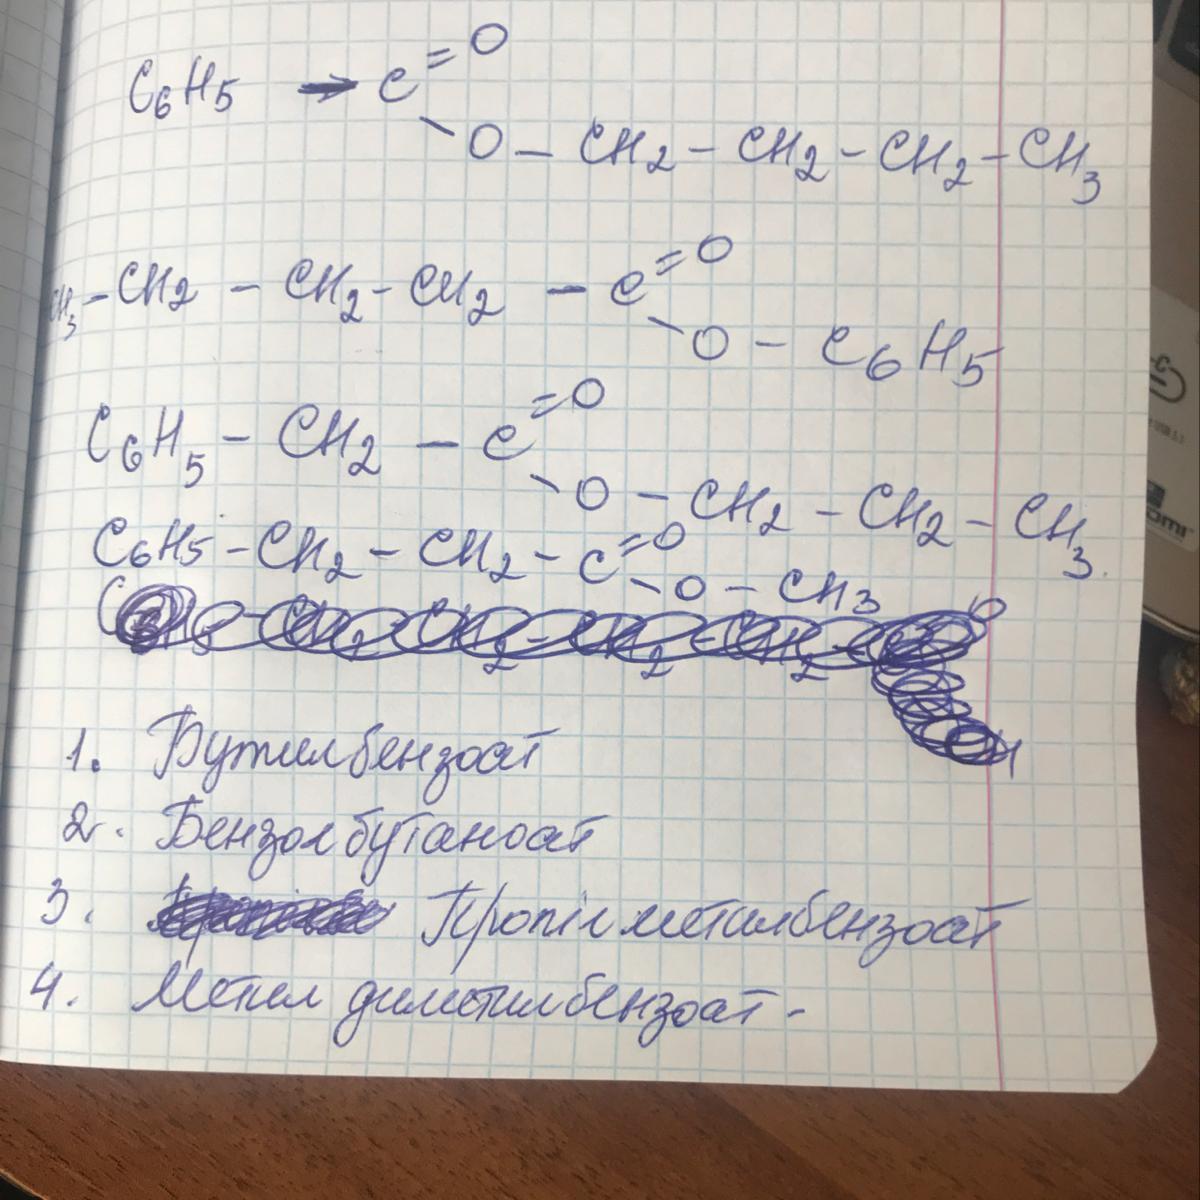 C6H5 → C =O
O – CH2 – CH2 – CH2 – CH3
CH3 – CH2 – CH2 – CH2 – C =O
O – C6H5
C6H5 – CH2 – C =O
O – CH2 – CH2 – CH3
C6H5 – CH2 – CH2 – C =O
O – CH3
1. Бутилбензоат
2. Бензолбутаноат
3. Пропіл метилбензоат
4. Метил диметилбензоат -